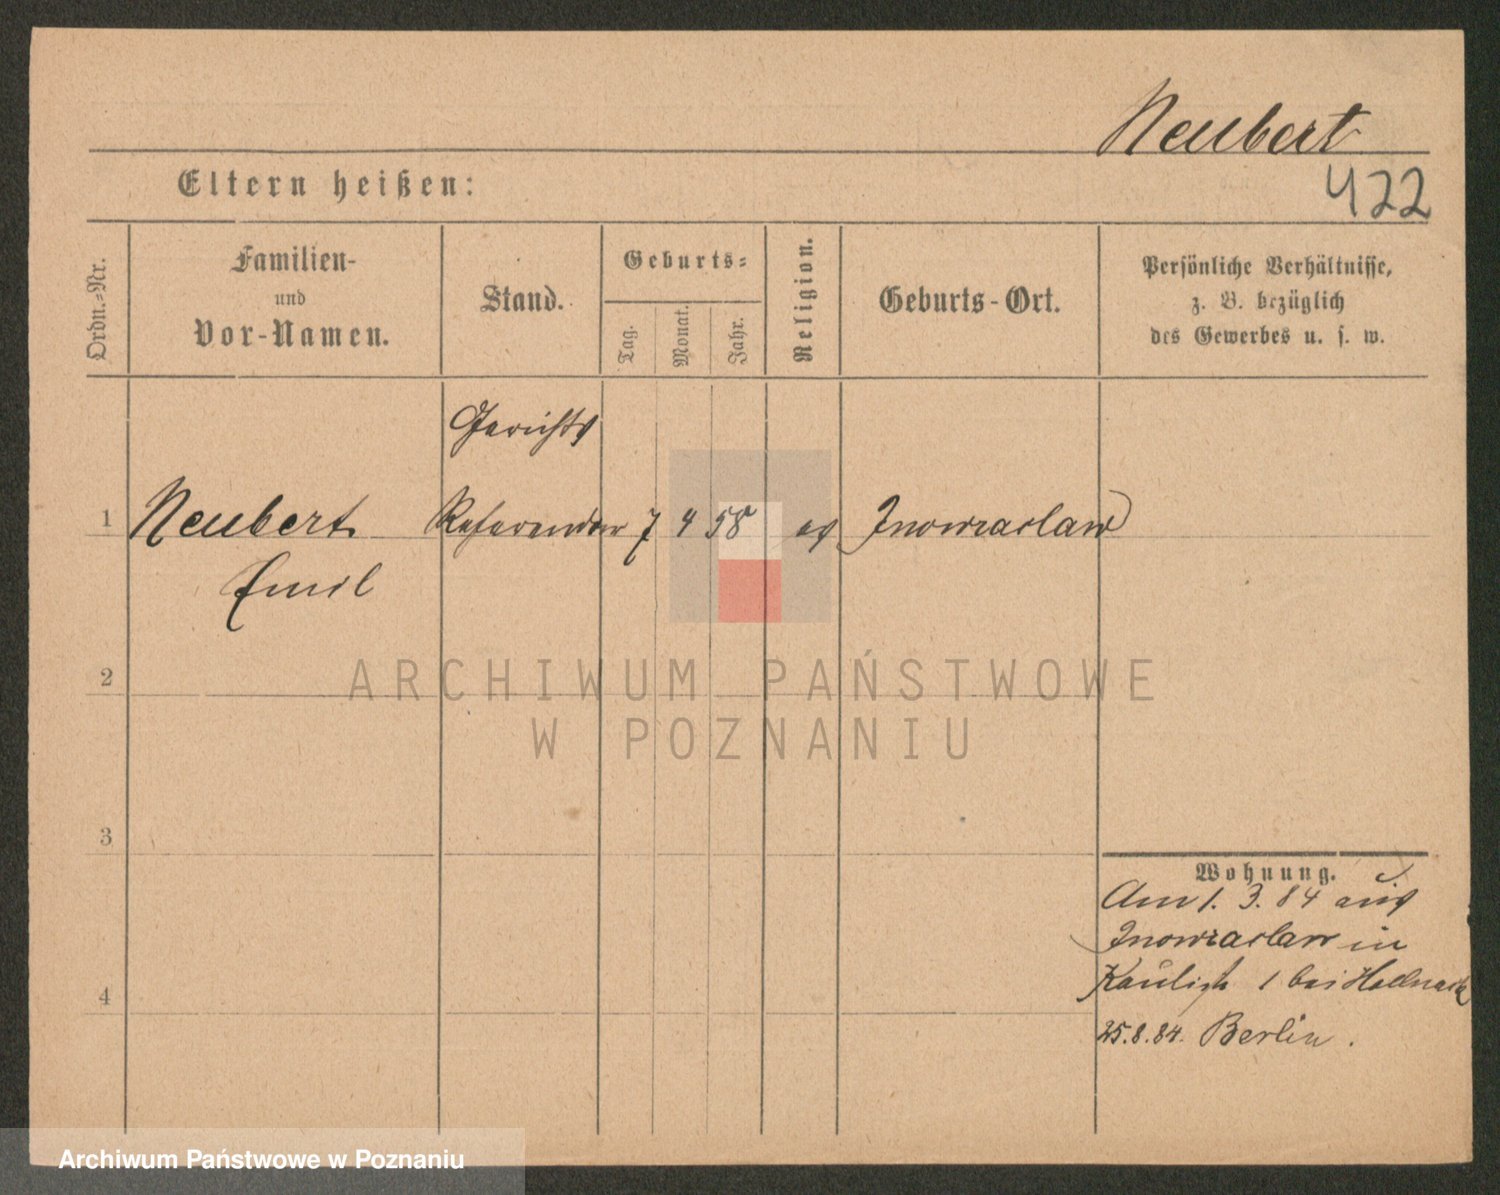 Neubert
Eltern heißen:
422
Ordn.=Nr.
Familien-
und
Vor-Namen.
Stand.
Geburts=
Tag.
Monat.
Jahr.
Religion.
Geburts-Ort.
Persönliche Verhältnisse,
z. B. bezüglich
des Gewerbes u. s. w.
Gerichts
1 Neubert Referendar 7 4 58 ev Inowrazlaw
Emil
2
ARCHIWUM PAŃSTWOWE
W POZNANIU
3
Wohnung.
Am 1. 3. 84 aus
Inowrazlaw in
1 bei
4
25.8.84. Berlin.
Archiwum Państwowe w Poznaniu